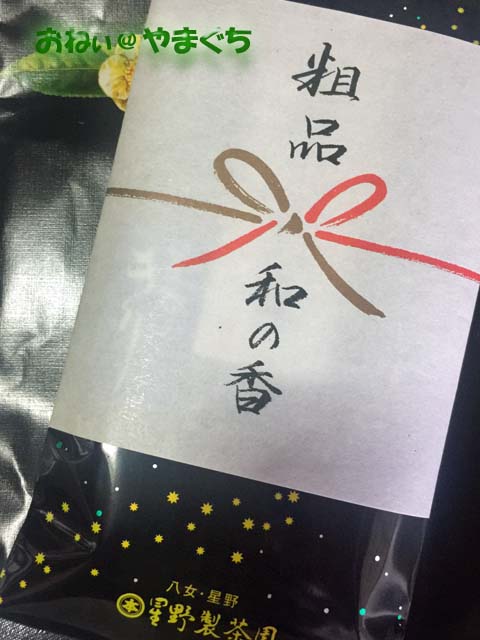 おねぃ@やまぐち
粗品
和の香
八女・星野
星野製茶園